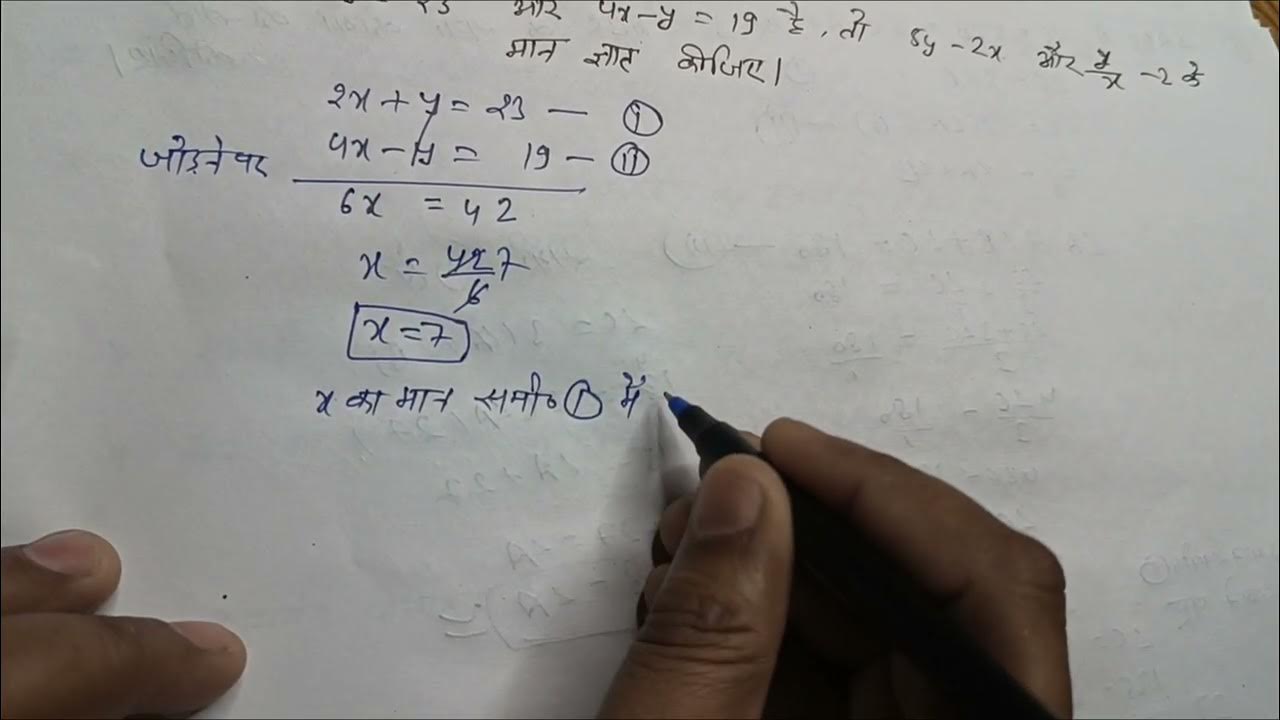 23 और 4x-y = 19 है, तो 5y-2x और y/x -2 के
मान ज्ञात कीजिए।
2x + y = 23 — ⓘ
जोड़ने पर 4x - y = 19 — ⓘⓘ
6x = 42
x = 42/6 7
x = 7
x का मान समी० ⓘ में